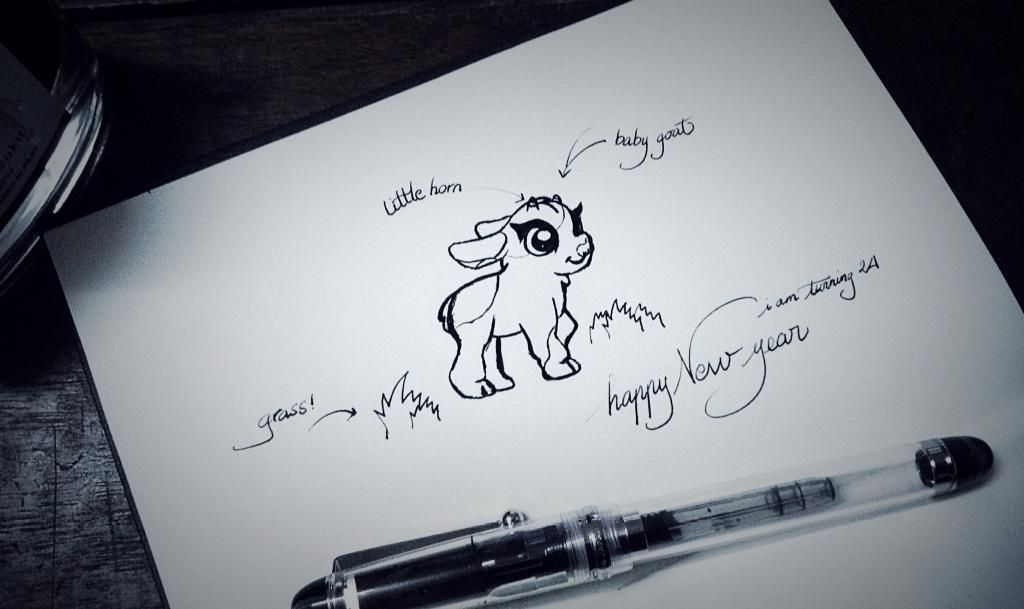 baby goat
Little horn
i am turning 24
happy New year
grass!